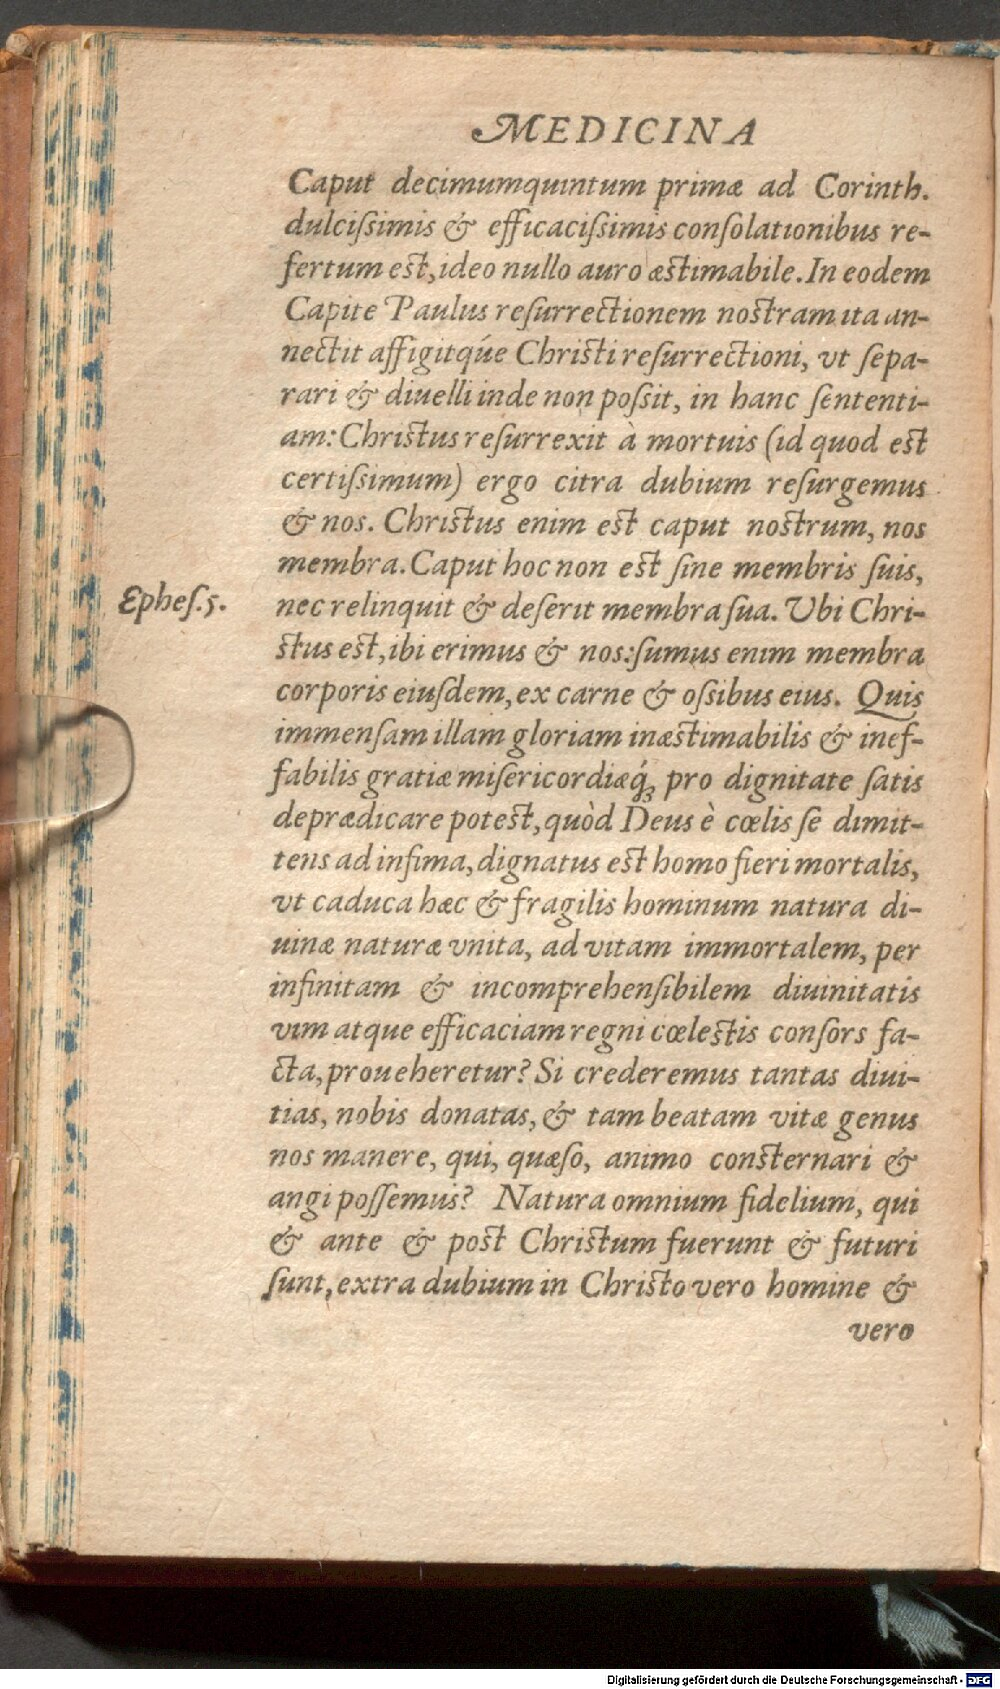 MEDICINA
Caput decimumquintum primæ ad Corinth.
dulciſsimis & efficaciſsimis conſolationibus re-
fertum est, ideo nullo auro æstimabile. In eodem
Capite Paulus reſurrectionem nostram ita an-
nectit affigitq́ue Christi reſurrectioni, vt ſepa-
rari & diuelli inde non poſsit, in hanc ſententi-
am: Christus reſurrexit à mortuis (id quod est
certiſsimum) ergo citra dubium reſurgemus
& nos. Christus enim est caput nostrum, nos
membra. Caput hoc non est ſine membris ſuis,
Epheſ. 5.
nec relinquit & deſerit membra ſua. Ubi Chri-
stus est, ibi erimus & nos: ſumus enim membra
corporis eiuſdem, ex carne & oſsibus eius. Quis
immenſam illam gloriam inæstimabilis & inef-
fabilis gratiæ miſericordiæq́ꝫ pro dignitate ſatis
deprædicare potest, quòd Deus è cœlis ſe dimit-
tens ad infima, dignatus est homo fieri mortalis,
vt caduca hæc & fragilis hominum natura di-
uinæ naturæ vnita, ad vitam immortalem, per
infinitam & incomprehenſibilem diuinitatis
vim atque efficaciam regni cœlestis conſors fa-
cta, proueheretur? Si crederemus tantas diui-
tias, nobis donatas, & tam beatam vitæ genus
nos manere, qui, quæſo, animo consternari &
angi poſſemus? Natura omnium fidelium, qui
& ante & post Christum fuerunt & futuri
ſunt, extra dubium in Christo vero homine &
vero
Digitalisierung gefördert durch die Deutsche Forschungsgemeinschaft - DFG